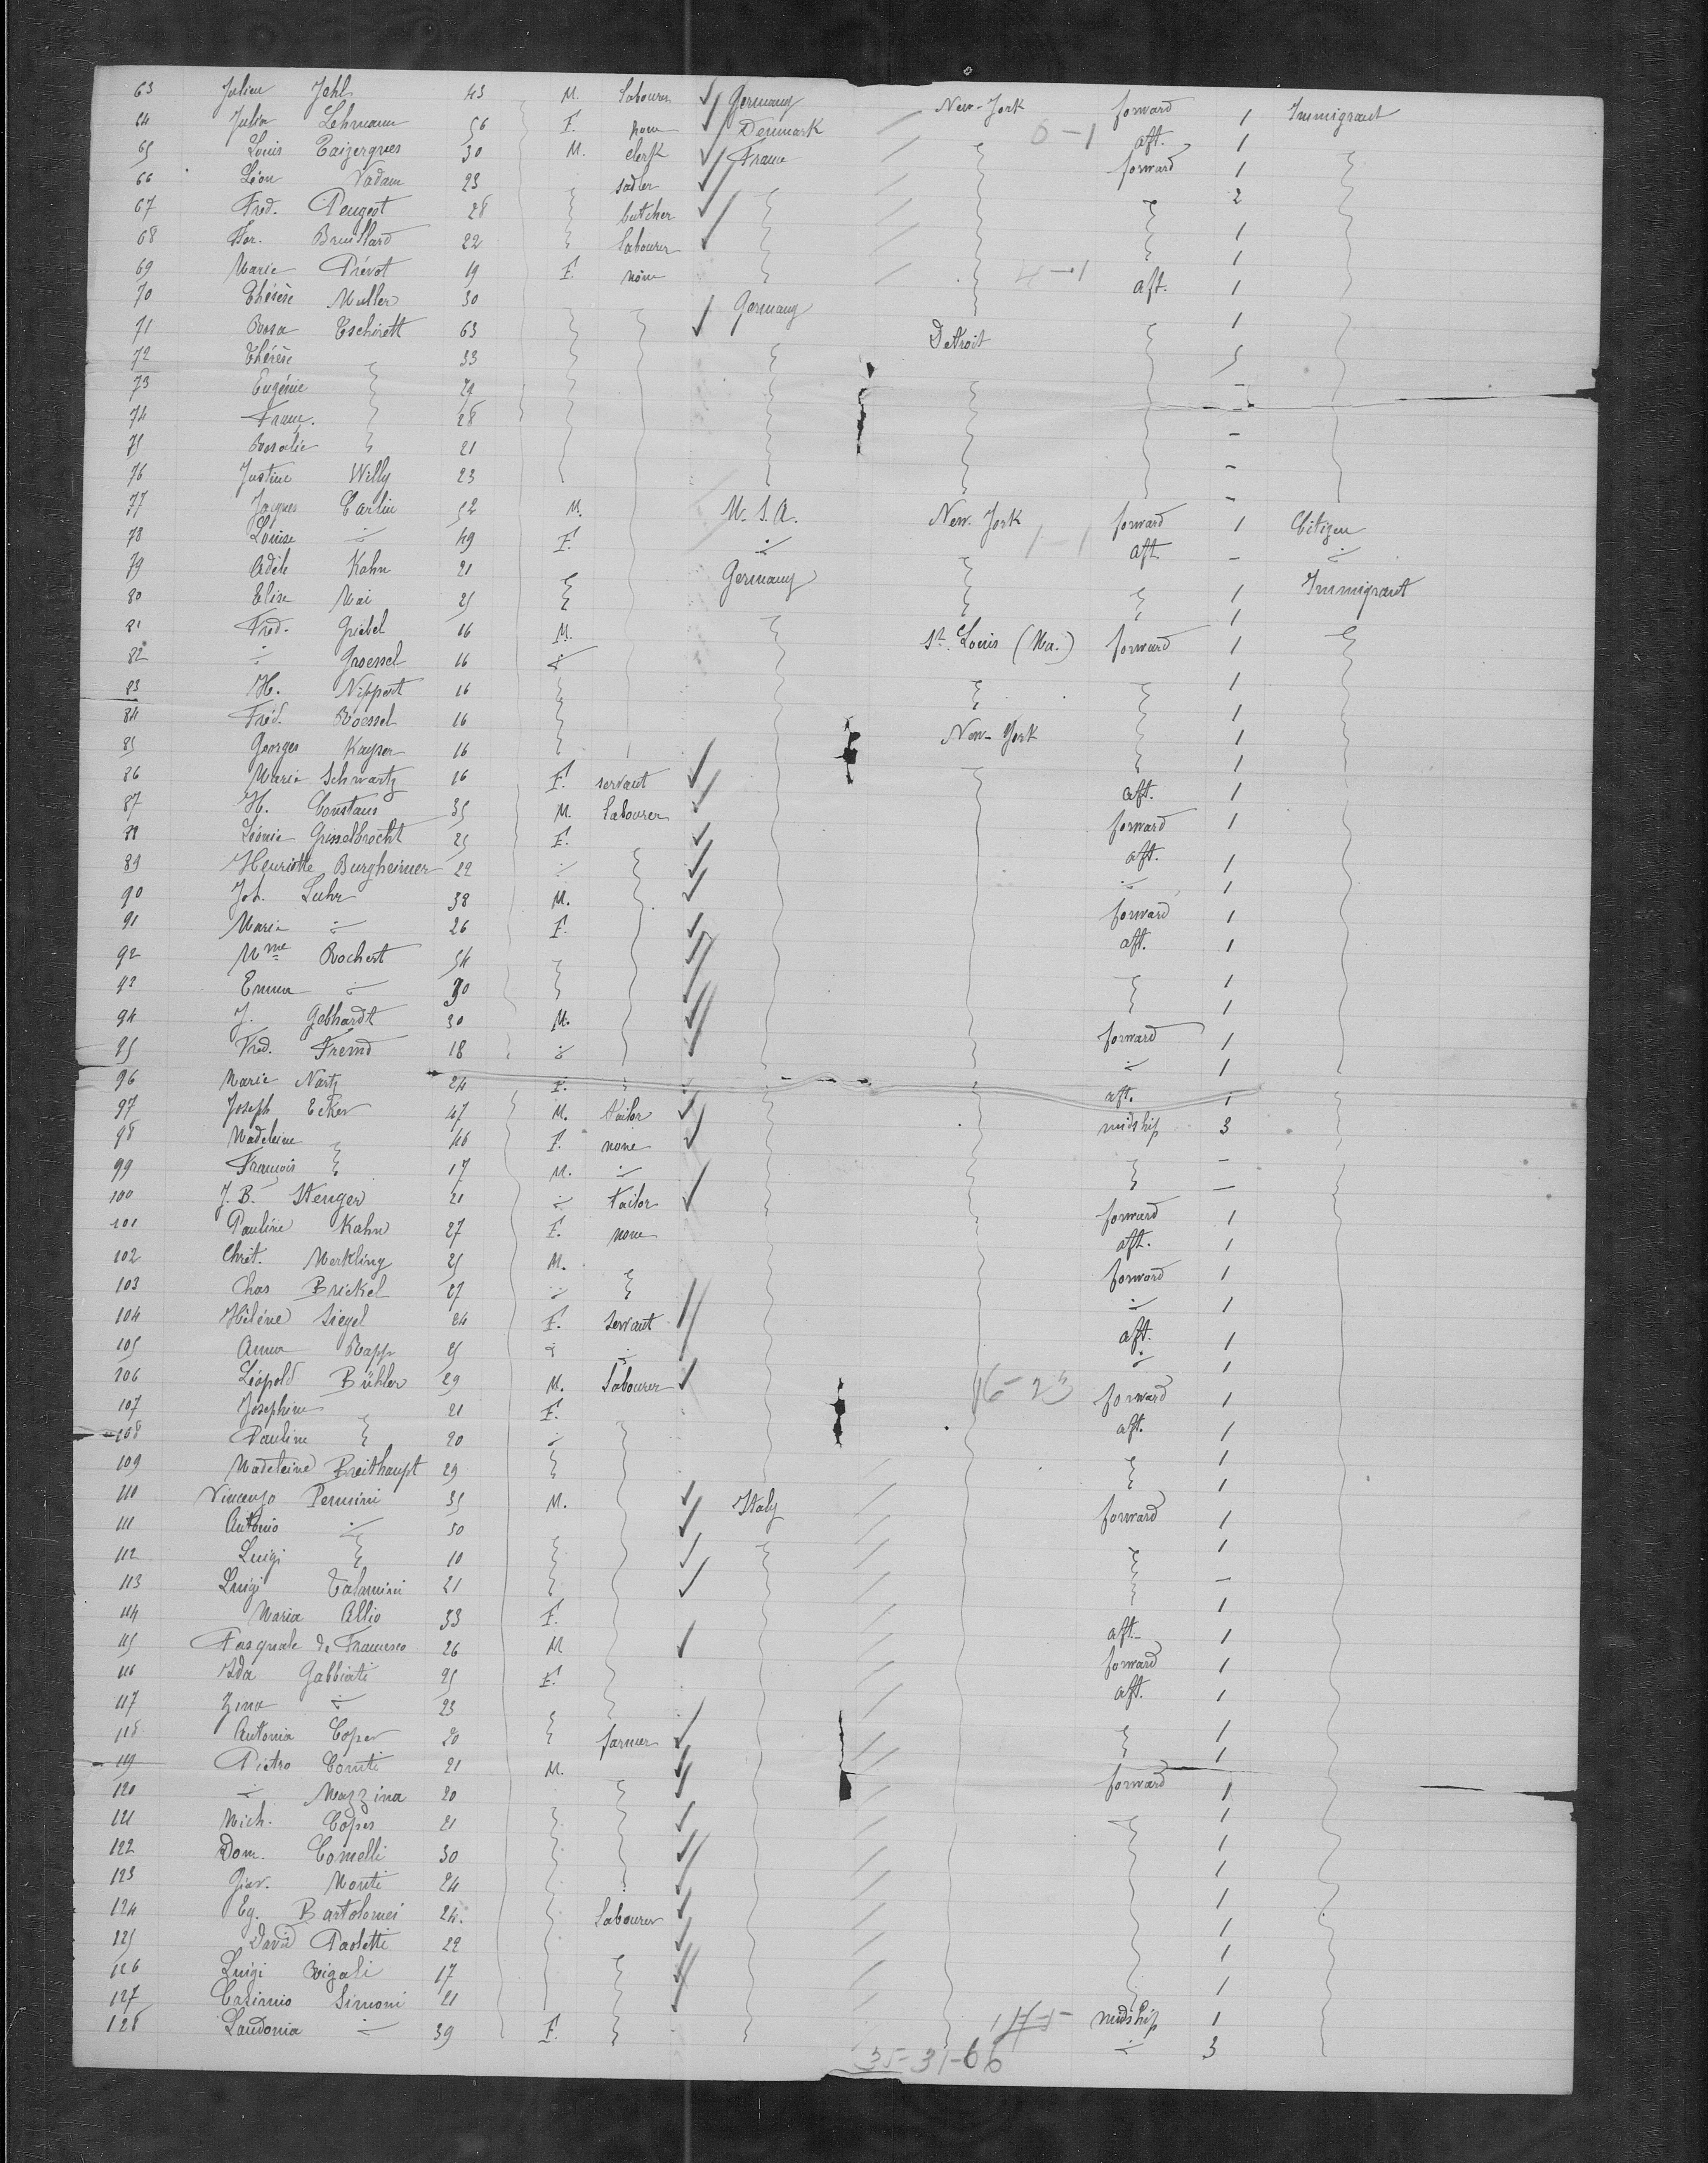 63 Julien Jehl 43 M. Labourer Germany New-York forward 1 Immigrant
64 Julia Lehmann 56 F. none Denmark 0-1 aft. 1
65 Louis Taizergues 30 M. clerk France forward 1
66 Léon Vadam 23 sadler 2
67 Fred. Peugeot 28 butcher 1
68 Fer. Bruillard 22 Labourer 1
69 Marie Prévot 19 F. none 4-1 aft. 1
70 Thérèse Muller 30 Germany 1
71 Rosa Tschirett 63 Detroit 5
72 Thérèse 33 -
73 Eugénie 29 -
74 Franc. 28 -
75 Rosalie 21 -
76 Justine Willy 23 -
77 Jaques Carlin 52 M. U.S.A. New-York forward 1 Citizen
78 Louise 49 F. 1-1 aft. -
79 Adèle Kahn 21 Germany 1 Immigrant
80 Elise Mai 25 1
81 Fred. Griebel 16 M. St. Louis (Ma.) forward 1
82 Groessel 16 1
83 H. Nippert 16 1
84 Fréd. Roessel 16 New-York 1
85 Georges Kayser 16 1
86 Maria Schwartz 16 F. servant aft. 1
87 H. Constans 35 M. Labourer forward 1
88 Léonie Grisselbrecht 25 F. aft. 1
89 Henriette Burgheimer 22 1
90 Joh. Luhr 38 M. forward 1
91 Maria 26 F. aft. 1
92 Mme Rochert 54 1
92 Emma 30 1
94 J. Gebhardt 30 M. forward 1
95 Fred. Fremd 18 1
96 Marie Nartz 24 F. aft. 1
97 Joseph Ecker 47 M. tailor midship 3
98 Madeleine 46 F. none -
99 François 17 M. -
100 J. B. Stenger 21 tailor forward 1
101 Pauline Kahn 27 F. none aft. 1
102 Chret. Merkling 25 M. forward 1
103 Chas Brickel 27 1
104 Hélène Siegel 24 F. servant aft. 1
105 Anna Rapp 25 1
106 Léopold Bühler 29 M. Labourer 16-23 forward 1
107 Josephine 21 F. aft. 1
108 Pauline 20 1
109 Madeleine Breithaupt 29 1
110 Vincenzo Perusini 35 M. Italy forward 1
111 Antonio 50 1
112 Luigi 10 -
113 Luigi Talamini 21 1
114 Maria Allio 33 F. aft. 1
115 Pasquale de Francesco 26 M forward 1
116 Ada Gabbiati 25 F. aft. 1
117 Zina 23 1
118 Antonia Coper 20 farmer 1
119 Pietro Comiti 21 M. forward 1
120 Mazzina 20 1
121 Mich. Coper 21 1
122 Dom. Comelli 30 1
123 Giov. Monti 24 1
124 Eg. Bartolomei 24. Labourer 1
125 David Paoletti 22 1
126 Luigi Rigali 17 1
127 Casimio Simoni 21 midship 1
128 Laudonia 39 F. 3
35-31-66